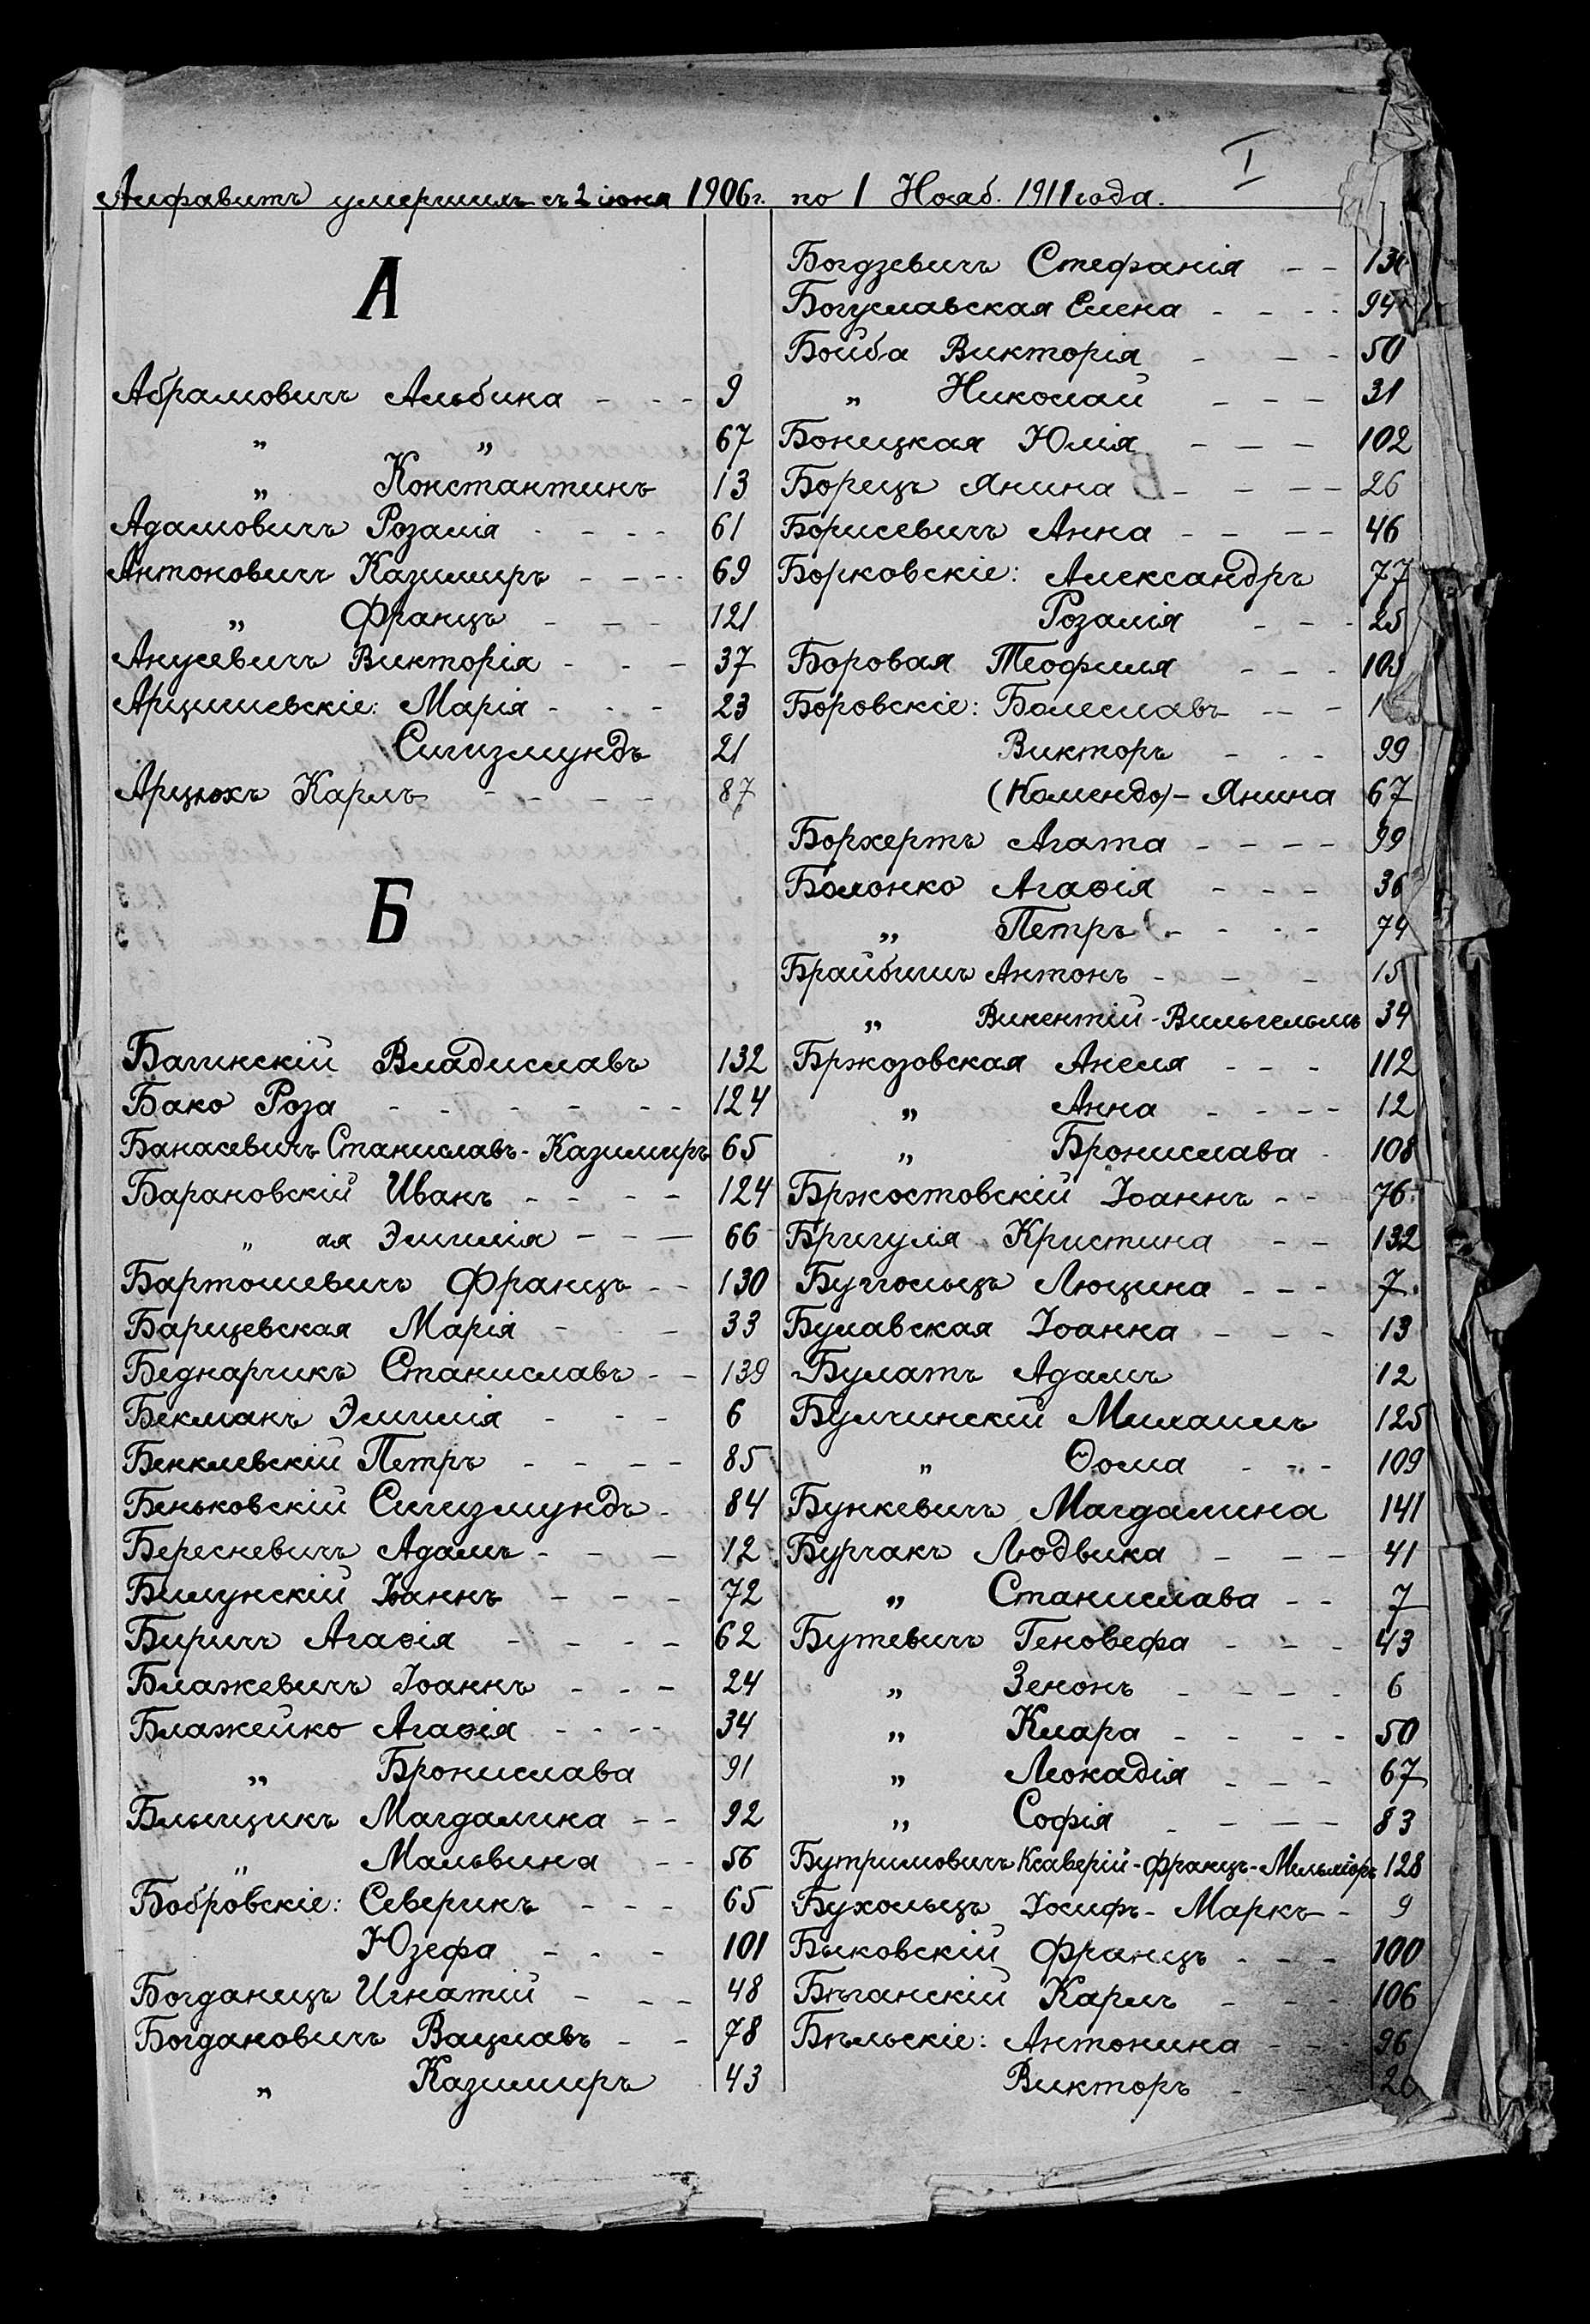 I
Алфавитъ умершихъ съ 2 іюня 1906г. по 1 Нояб. 1911 года.
А
Абрамовичъ Альбина - - - 9
„ „ 67
„ Константинъ 13
Адамовичъ Розалія - - - - 61
Антоновичъ Казимиръ - - - - 69
„ Францъ - - - 121
Анусевичъ Викторія - - - 37
Арцишевскіе: Марія - - - 23
Сигизмундъ 21
Арцюхъ Карлъ - - - - - 87
Б
Багинскій Владиславъ 132
Бако Роза - - - - - - - 124
Банасевичъ Станиславъ-Казимиръ 65
Барановскій Иванъ - - - - 124
„ ая Эмилія - - - 66
Бартошевичъ Францъ - - 130
Барщевская Марія - - - 33
Беднарчикъ Станиславъ - - 139
Бекманъ Эмилія - - - 6
Бенклевскій Петръ - - - - 85
Беньковскій Сигизмундъ - 84
Бересневичъ Адамъ - - - 12
Билунскій Іоаннъ - - - 72
Биричъ Агаѳія - - - - 62
Блажевичъ Іоаннъ - - - 24
Блажейко Агаѳія - - - - 34
„ Бронислава 91
Блыщикъ Магдалина - - 92
„ Мальвина - - 56
Бобровскіе: Северинъ - - - 65
Юзефа - - - 101
Богданецъ Игнатій - - - 48
Богдановичъ Вацлавъ - - 78
„ Казимиръ 43
Богдзевичъ Стефанія - - 13
Богуславская Елена - - - - 94
Бойба Викторія - - - 50
„ Николай - - - 31
Боницкая Юлія - - - 102
Борецъ Янина - - - - 26
Борисевичъ Анна - - - - 46
Борковскіе: Александръ 77
Розалія - - - 25
Боровая Теофиля - - - 10
Боровскіе: Болеславъ - - - 1
Викторъ - - - 99
(Комендо)- Янина 67
Борхертъ Агата - - - - 99
Болонко Агаѳія - - - 36
„ Петръ - - - - 74
Брайбишъ Антонъ - - - 15
„ Викентій-Вильгельмъ 34
Бржозовская Анеля - - - 112
„ Анна - - - - 12
„ Бронислава - 108
Бржостовскій Іоаннъ - - 76
Бригуля Кристина - - 132
Буггольцъ Люцина - - - 7
Булавская Іоанна - - - 13
Булатъ Адамъ 12
Булчинскій Михаилъ 125
„ Ѳома - - - 109
Бункевичъ Магдалина 141
Бурчакъ Людвика - - - 41
„ Станислава - - 7
Бутевичъ Геновефа - - - 43
„ Зенонъ - - - - 6
„ Клара - - - - 50
„ Леокадія - - - 67
„ Софія - - - - 83
Бутримовичъ Ксаверій-Францъ-Мельхіоръ 128
Бухольцъ Іосифъ-Маркъ - 9
Быковскій Францъ - - - 100
Бѣганскій Карлъ - - - 106
Бѣльскіе: Антонина - - - 96
Викторъ - - - 2